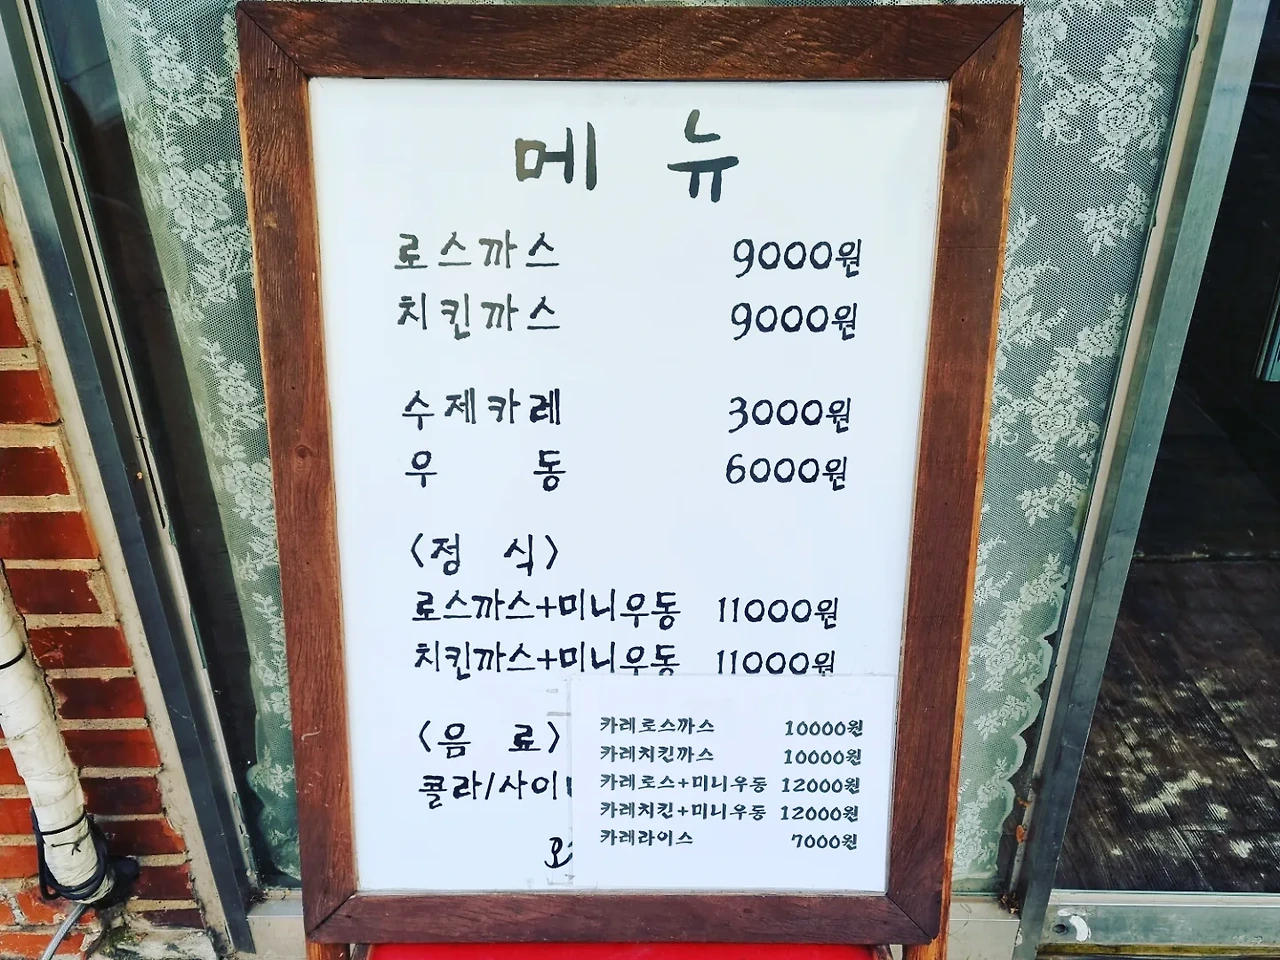 메 뉴
로스까스 9000원
치킨까스 9000원
수제카레 3000원
우 동 6000원
<정 식>
로스까스+미니우동 11000원
치킨까스+미니우동 11000원
<음 료>
콜라/사이
카레로스까스 10000원
카레치킨까스 10000원
카레로스+미니우동 12000원
카레치킨+미니우동 12000원
카레라이스 7000원